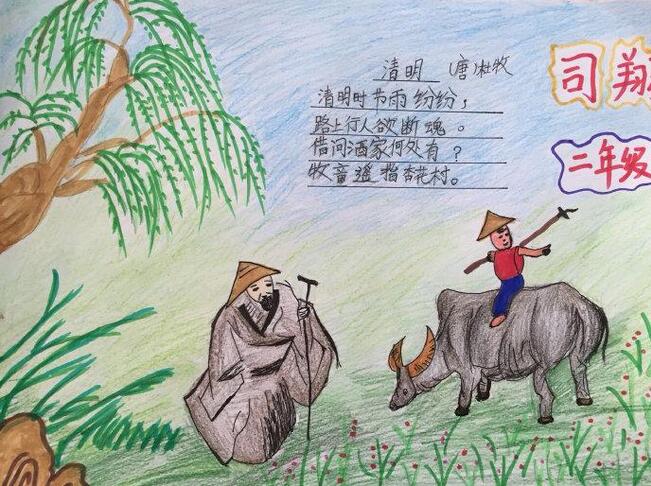 清明 唐 杜牧
清明时节雨纷纷，
路上行人欲断魂。
借问酒家何处有？
牧童遥指杏花村。
司翔
二年级